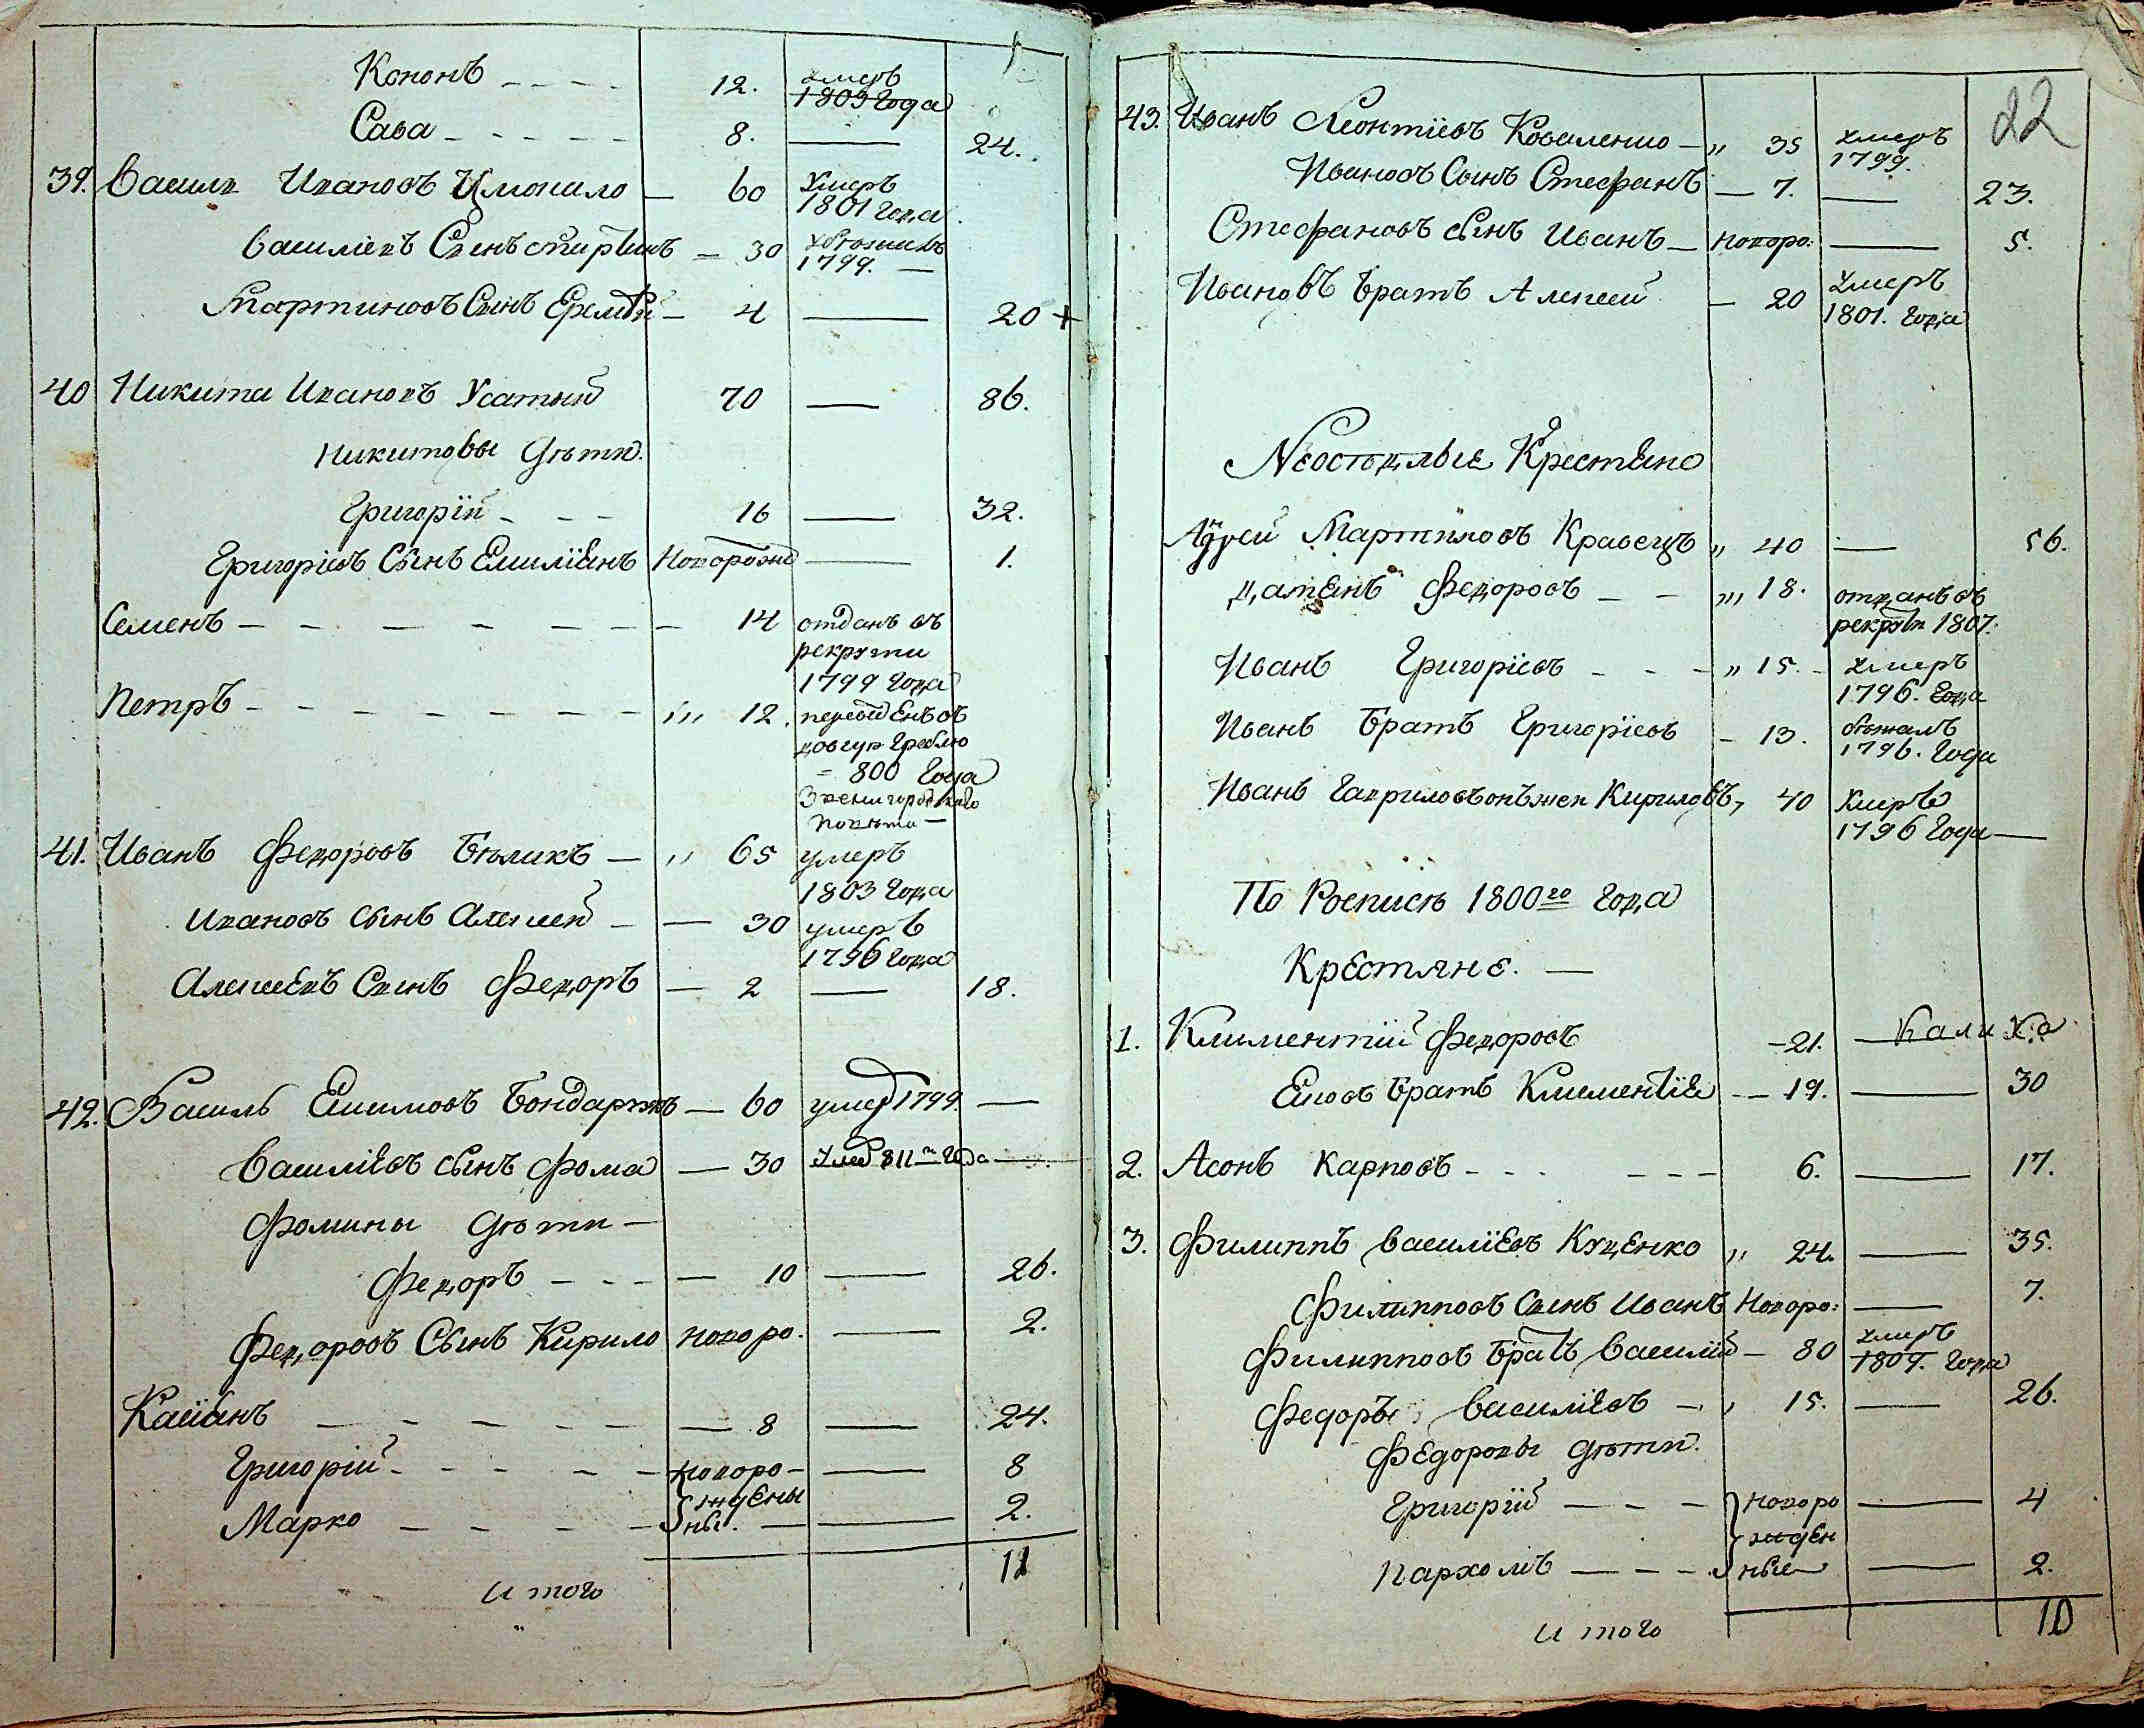 Кононъ 12. умеръ 1809 Года
Сава 8. — 24.
39. Василь Ивановъ Цмокало — 60 умеръ 1801 Года
Василіевъ Сынъ — 30 1799. —
Мартиновъ Сынъ Еремѣй — 4 — 20 +
40 Никита Ивановъ Усатый 70 — 86.
Никитовы Дѣти.
Григорій 16 — 32.
Григоріевъ Сынъ Емиліянъ Новорожд — 1.
Семенъ — 14 отданъ въ
рекрути
1799 Года
Петръ — 12. переведенъ въ
Греблю
800 Года
Звенигородскаго
Повѣта —
41. Иванъ Федоровъ Бѣликъ — 65 умеръ
1803 Года
Ивановъ сынъ Алексей — 30 умеръ
1796 Года
Алексеевъ Сынъ Федоръ — 2 — 18.
42. Василь Бондар — 60 умеръ 1799. —
Василіевъ сынъ Фома — 30 811 Года —
Фомины Дѣти —
Федоръ — 10 — 26.
Федоровъ Сынъ Кирило новоро. — 2.
Касіянъ — 8 — 24.
Григорій — новоро- — 8
ждены
Марко — ны. — 2.
11
итого
22
43. Иванъ Леонтіевъ Коваленко — 35 умеръ
1799.
Ивановъ Сынъ Стефанъ — 7. — 23.
Стефановъ сынъ Иванъ — новоро: — 5.
Ивановъ братъ Алексей — 20 умеръ
1801. Года
Крестяне
Мартиновъ Кравецъ 40 — 56.
Федоровъ — 18. отданъ въ
рекруты 1807.
Иванъ Григоріевъ — 15. умеръ
1796. Года
Иванъ братъ Григоріевъ — 13. бѣжалъ
1796. Года
Иванъ Гавриловъ онъ же и Кириловъ, 40 умеръ
1796 Года —
По Росписѣ 1800го Года
Крестяне. —
1. Климентій Федоровъ -21. —
Еговъ братъ Климентіи — 19. — 30
2. Асонъ Карповъ — 6. — 17.
3. Филиппъ Василіевъ Куценко 24. — 35.
Филипповъ Сынъ Иванъ Новоро: — 7.
Филипповъ братъ Василій — 80 умеръ
1809. Года
Федоръ Василіевъ — 15. — 26.
Федоровы дѣти.
Григорій — новоро — 4
жден
Пархомъ — ные — 2.
10
итого